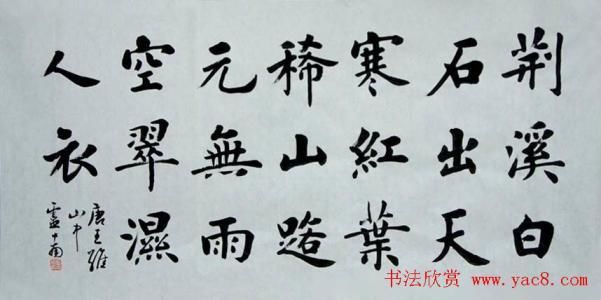 荆溪白
石出天
寒紅葉
稀山路
元無雨
空翠濕
人衣
唐王維
山中
盧中南
书法欣赏 www.yac8.com